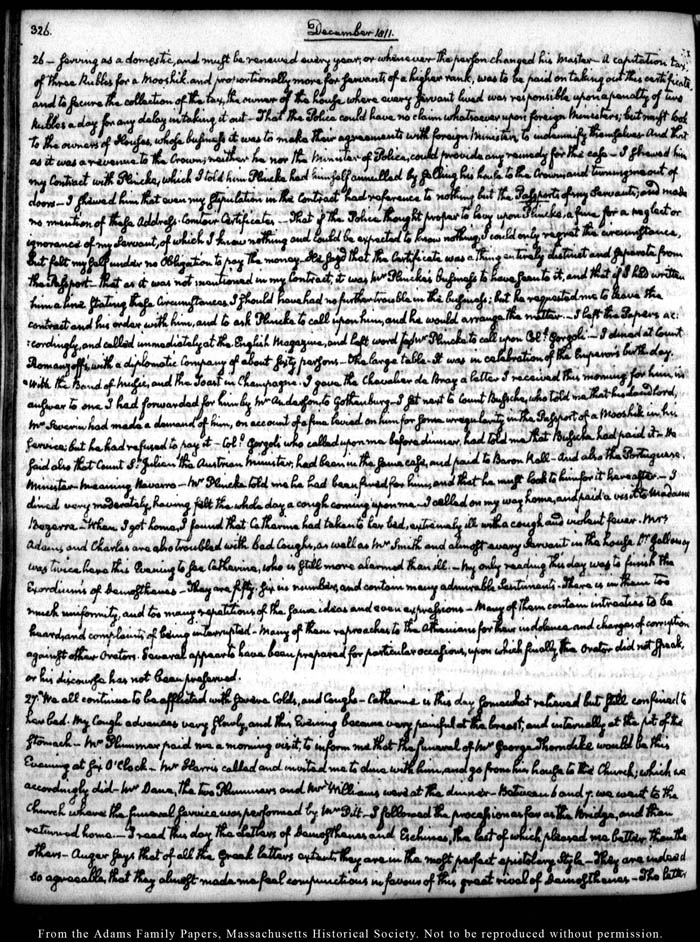 326.
December 1811.
26 — serving as a domestic, and must be renewed every year, or whenever the person changed his Master — A capitation tax,
of three Rubles for a Mooshik, and proportionally more for servants of a higher rank, was to be paid on taking out this certificate
and to secure the collection of the tax, the owner of the house where every servant lived was responsible upon a penalty of two
Rubles a day for any delay in taking it out — That the Police could have no claim whatsoever upon foreign Ministers; but must look
to the owners of Houses, whose business it was to make their agreements with foreign Ministers, to indemnify themselves. And that
as it was a revenue to the Crown, neither he nor the Minister of Police, could provide any remedy for the case — I shewed him
my Contract with Plincke, which I told him Plincke had himself annulled by selling his house to the Crown, and turning me out of
doors — I shewed him that even my stipulation in the Contract had reference to nothing but the Passports of my Servants; and made
no mention of these Address-Comtoir Certificates — That if the Police thought proper to levy upon Plincke, a fine for a neglect or
ignorance of my Servant, of which I knew nothing and could be expected to know nothing, I could only regret the circumstance,
but felt myself under no obligation to pay the money. He said that the Certificate was a thing entirely distinct and separate from
the Passport — That as it was not mentioned in my Contract, it was Mr Plincke's business to have seen to it, and that if I had written
him a line stating these Circumstances I should have had no further trouble in this business; but he requested me to leave the
contract and his order with him, and to ask Plincke to call upon him, and he would arrange the matter. — I left the Papers ac:
:cordingly, and called immediately at the English Magazine, and left word for Mr Plincke to call upon Coll. Gorgoli — I dined at Count
Romanzoff's, with a diplomatic Company of about sixty persons — The large table — It was in celebration of the Emperor's birth-day.
With the Band of Music, and the Toast in Champagne. I gave the Chevalier de Bray a letter I received this morning for him in
answer to one I had forwarded for him by Mr Anderson to Gothenburg — I sat next to Count Bussche, who told me that his landlord,
Mr Severin had made a demand of him, on account of a fine levied on him for some irregularity in the Passport of a Mooshik in his
service; but he had refused to pay it — Coll. Gorgoli, who called upon me before dinner, had told me that Bussche had paid it — He
said also that Count St. Julien the Austrian Minister, had been in the same case, and paid to Baron Rall — And also the Portuguese
Minister — meaning Navarro — Mr Plincke told me he had been fined for him, and that he must look to him for it hereafter. — I
dined very moderately, having felt the whole day a cough coming upon me — I called on my way home, and paid a visit to Madame
Bezerra — When I got home, I found that Catharine had taken to her bed, extremely ill with a cough and violent fever. Mrs
Adams and Charles are also troubled with bad Coughs, as well as Mr Smith and almost every Servant in the house. Dr. Galloway
was twice here this Evening to see Catharine, who is still more alarmed than ill. — My only reading this day was to finish the
Exordiums of Demosthenes — They are fifty-six in number, and contain many admirable Sentiments. There is in them too
much uniformity, and too many repetitions of the same ideas and even expressions — Many of them contain intreaties to be
heard, and complaints of being interrupted — Many of them reproaches to the Athenians for their indolence and charges of corruption
against other Orators. Several appear to have been prepared for particular occasions, upon which finally the Orator did not speak,
or his discourse has not been preserved.
27. We all continue to be afflicted with severe Colds, and Coughs — Catharine is this day somewhat relieved but still confined to
her bed. My Cough advances very slowly, and this Evening became very painful at the breast, and internally at the pit of the
stomach — Mr Plummer paid me a morning visit, to inform me that the funeral of Mr George Thorndike would be this
Evening at six O'Clock — Mr Harris called and invited me to dine with him, and go from his house to the Church; which we
accordingly did — Mr Dana, the two Plummers and Mr Williams were at the dinner — Between 6 and 7. we went to the
Church where the funeral service was performed by Mr Pitt — I followed the procession as far as the Bridge, and then
returned home. — I read this day the Letters of Demosthenes and Eschines, the last of which pleased me better than the
others — Auger says that of all the Greek letters extant, they are in the most perfect epistolary style — They are indeed
so agreeable, that they almost made me feel compunctions in favour of this great rival of Demosthenes — The latter
From the Adams Family Papers, Massachusetts Historical Society. Not to be reproduced without permission.